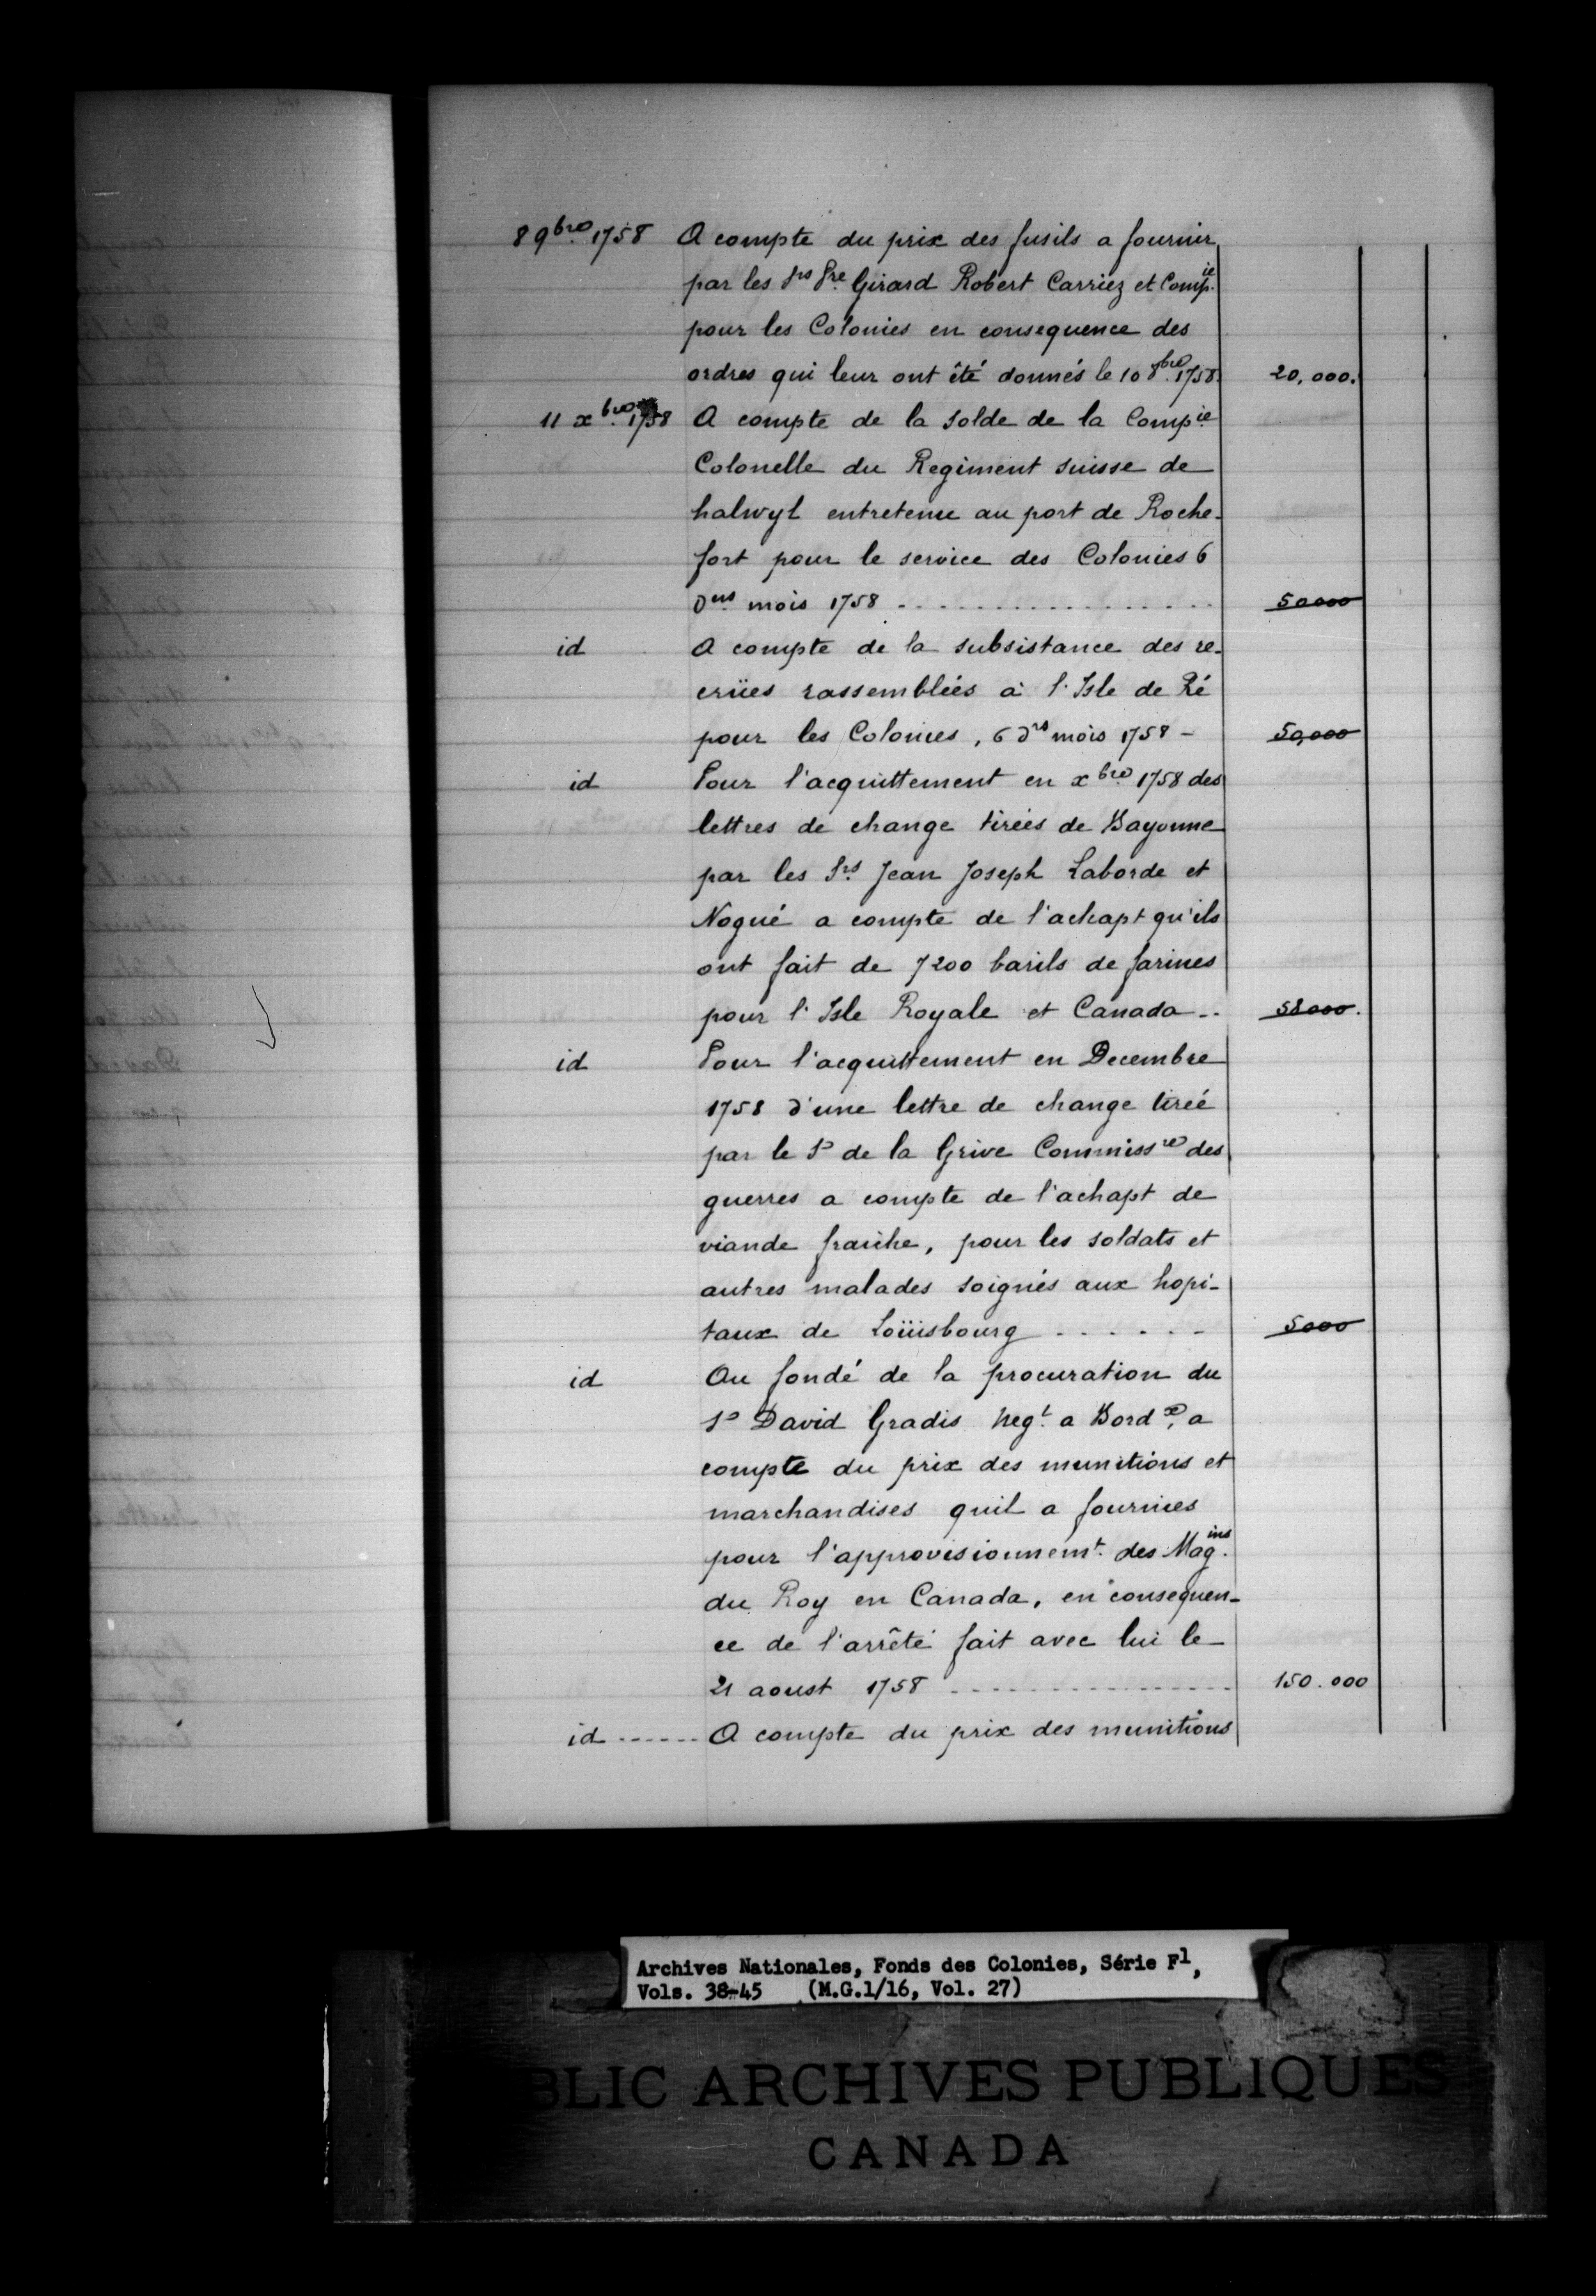 8 9bre 1758 A compte du prix des fusils a fournir
par les Srs Pre Girard Robert Carriez et Compie
pour les Colonies en consequence des
ordres qui leur ont êté donnés le 10 8bre 1758. 20,000.
11 xbre 1758 A compte de la solde de la Compie
Colonelle du Regiment suisse de
halwyl entretenue au port de Roche-
fort pour le service des Colonies 6
Ders mois 1758 50000
id A compte de la subsistance des re-
crües rassemblées à l'Isle de Ré
pour les Colonies, 6 drs mois 1758 - 50,000
id Pour l'acquittement en xbre 1758 des
lettres de change tirées de Bayonne
par les Srs Jean Joseph Laborde et
Nogué a compte de l'achapt qu'ils
ont fait de 7200 barils de farines
pour l'Isle Royale et Canada -- 58000.
id Pour l'acquittement en Decembre
1758 d'une lettre de change tirée
par le Sr de la Grive Commissre des
guerres a compte de l'achapt de
viande fraiche, pour les soldats et
autres malades soignés aux hopi-
taux de Loüisbourg ...... 5000
id Au fondé de la procuration du
Sr David Gradis Negt. a Bordx, a
compte du prix des munitions et
marchandises quil a fournies
pour l'approvisionnemt. des Magins
du Roy en Canada, en consequen-
ce de l'arrêté fait avec lui le
21 aoust 1758 150.000
id ...... A compte du prix des munitions
Archives Nationales, Fonds des Colonies, Série F1,
Vols. 38-45 (M.G.1/16, Vol. 27)
BLIC ARCHIVES PUBLIQUES
CANADA